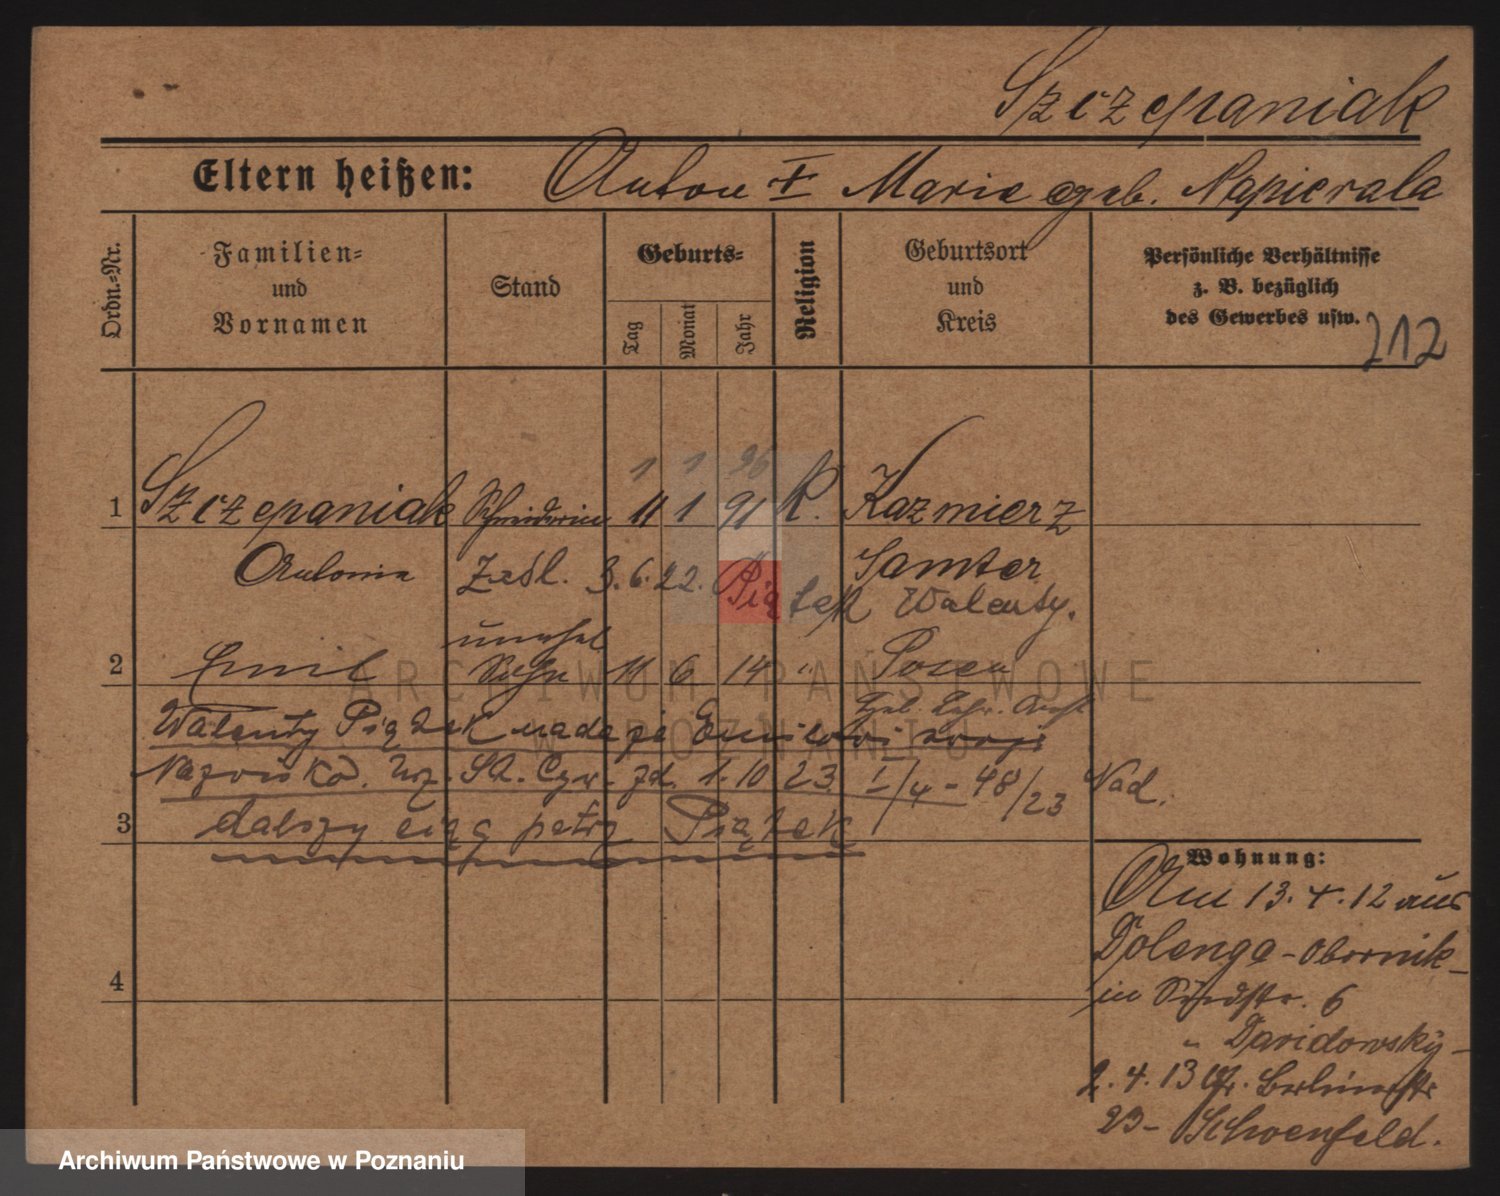 Szczepaniak
Eltern heißen: Anton † Marie geb. Napierala
Ordn.-Nr.
Familien- und Vornamen
Stand
Geburts-
Tag
Monat
Jahr
Religion
Geburtsort und Kreis
Persönliche Verhältnisse z. B. bezüglich des Gewerbes usw.
212
1 1 96
1 Szczepaniak Schneiderin 11 1 91 K. Kazmierz
Antonie Samter
3.6.22. Piątek Walenty.
unehel
2 Emil Sohn 11 6 14 " Posen
Walenty Piątek nadaje Emilowi swoje
Nazwisko. 1.10 23 I/4-48/23 Nad.
3 dalszy ciąg patrz Piątek
4
Wohnung:
Am 13.4.12 aus
Dolenga-Obornik-
in Südstr. 6
" Davidowsky-
2.4.13 Gr. Berlinerstr
23- Schoenfeld.
ARCHIWUM PAŃSTWOWE
W POZNANIU
Archiwum Państwowe w Poznaniu